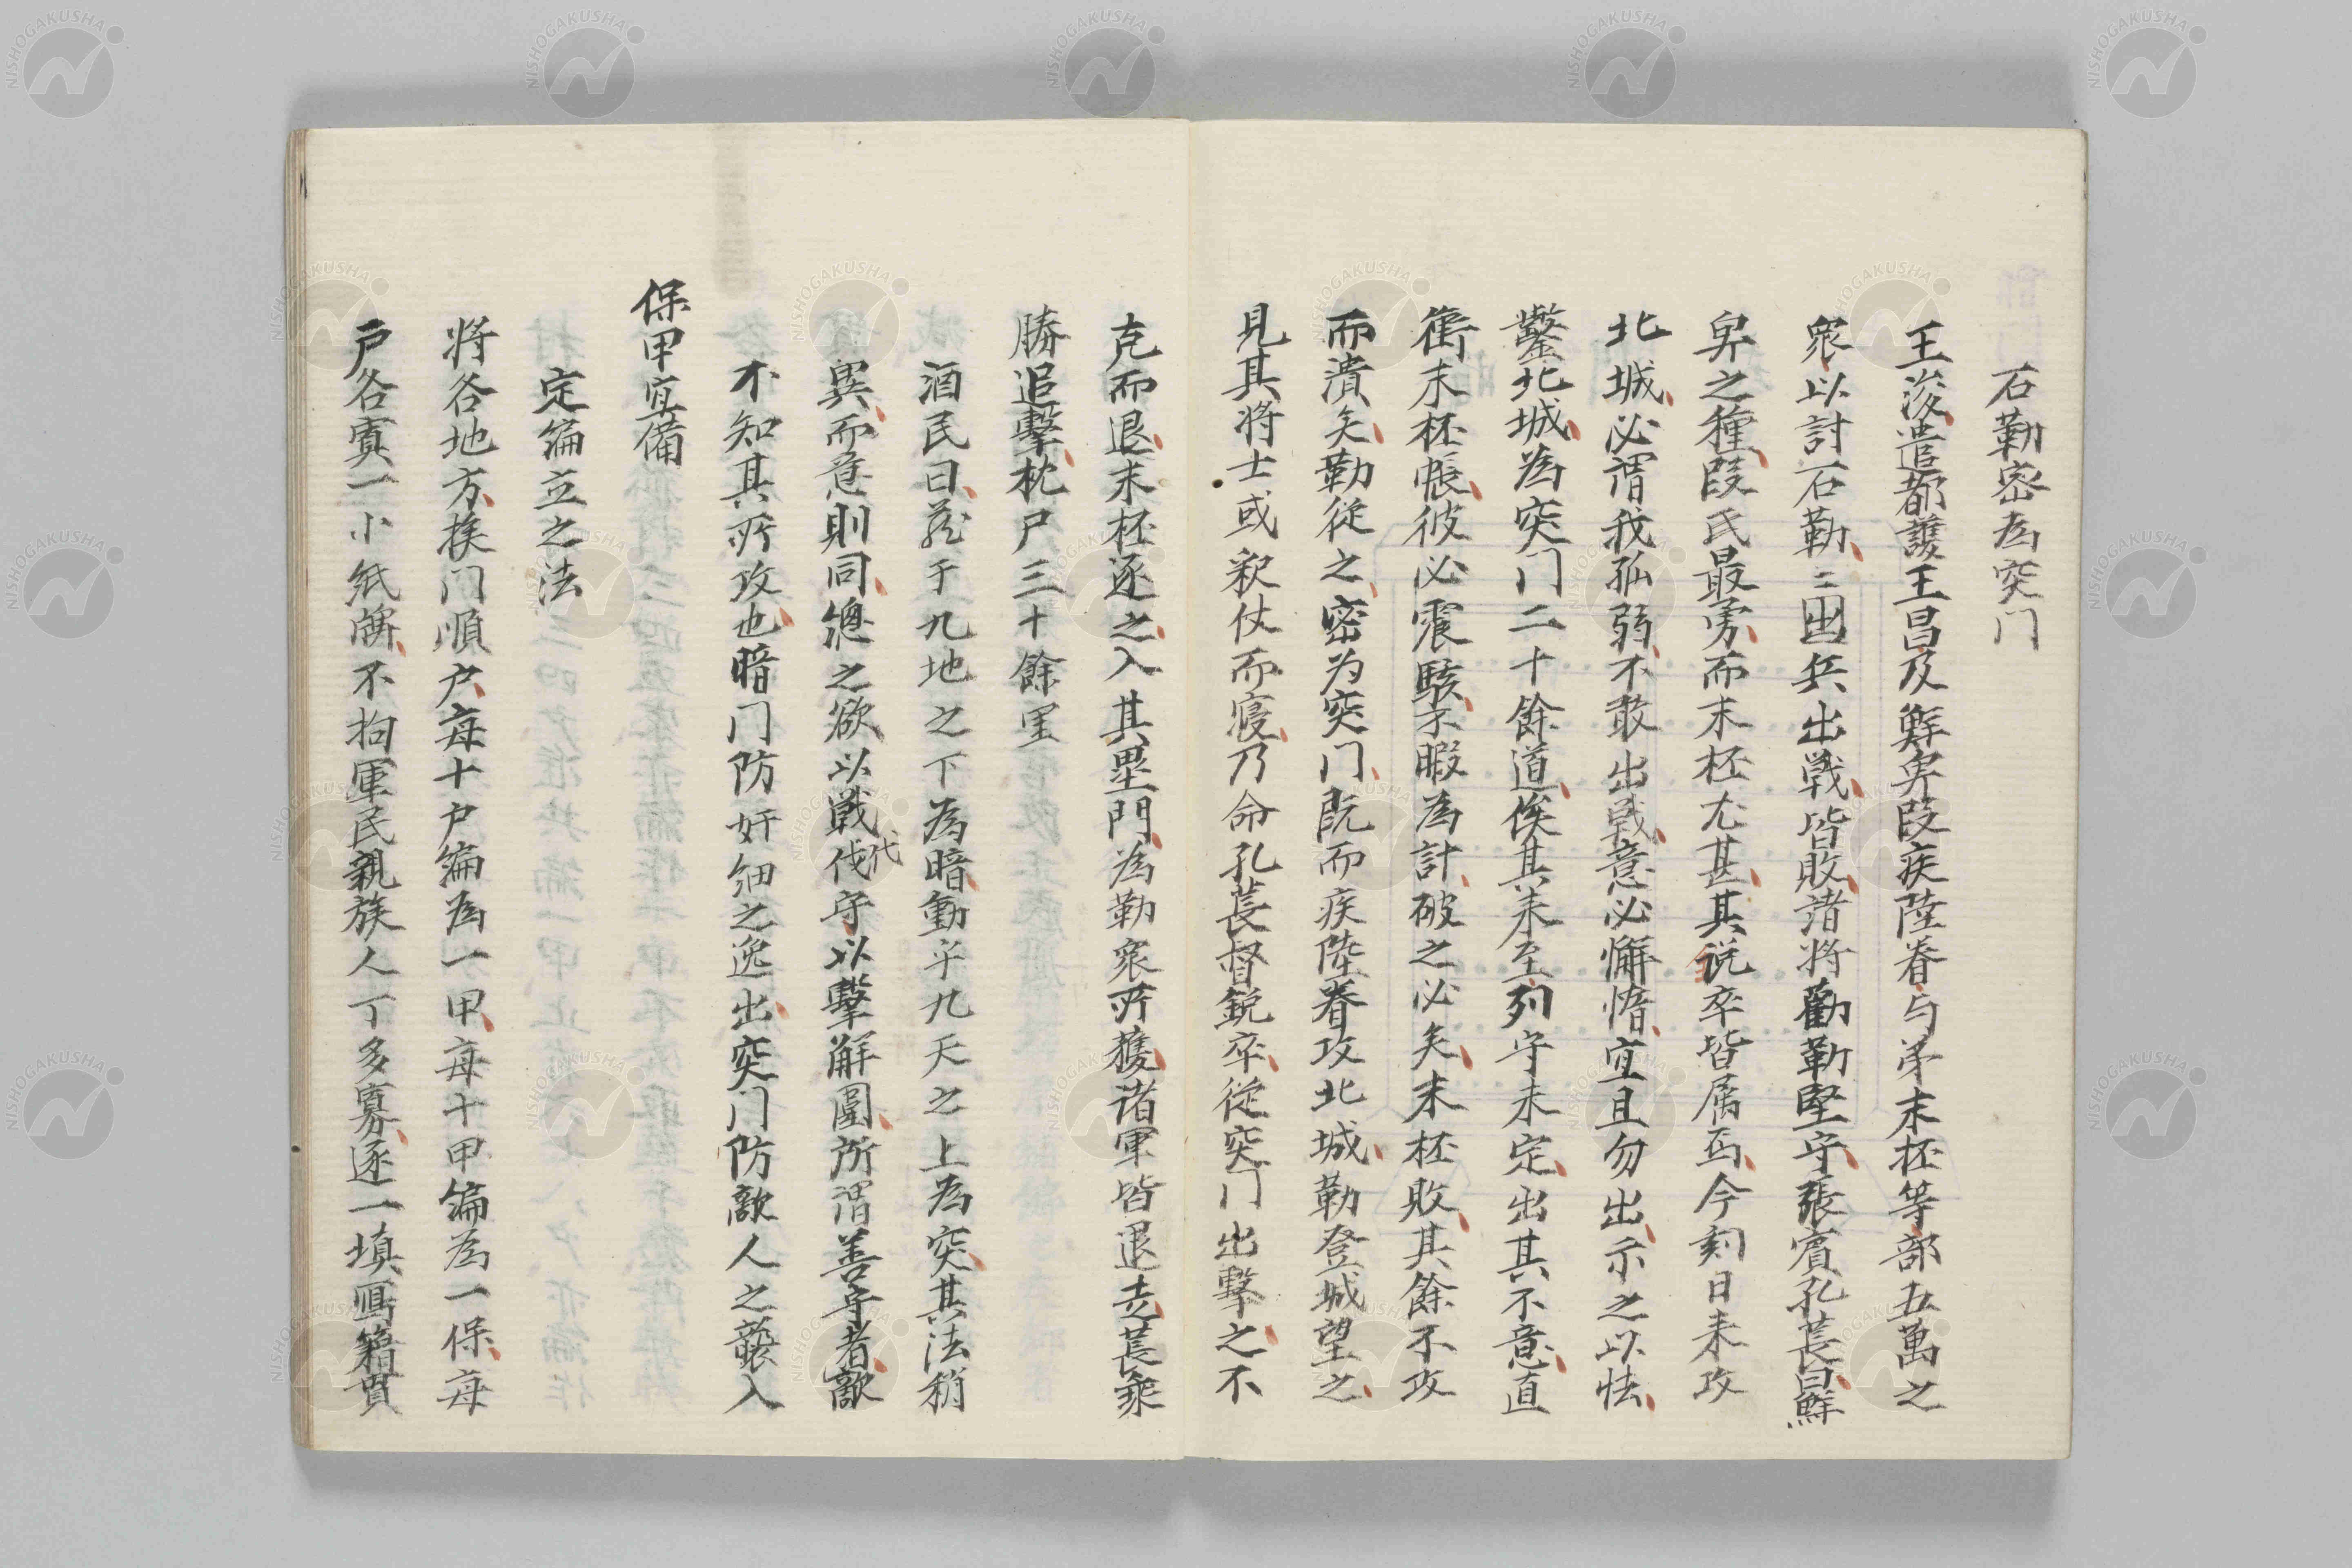 石勒密為突门
王浚遣都護王昌及鮮卑段疾陸眷与弟末柸等部五萬之
衆以討石勒〻出兵出戦皆敗諸将勸勒堅守張賓孔萇曰鮮
卑之種段氏最勇而末柸尤甚其説卒皆属焉今刻日来攻
北城必謂我孤弱不敢出戦意必懈惰宜且勿出示之以怯
鑿北城為突门二十餘道俟其来至列守未定出其不意直
衝末柸帳彼必震駭不暇為計破之必矣末柸敗其餘不攻
而潰矣勒従之密为突门既而疾陸眷攻北城勒登城望之
見其将士或釈仗而寝乃命孔萇督鋭卒従突门出撃之不
克而退末柸逐之入其壘門為勒衆所獲诸軍皆退走萇乘
勝追擊枕尸三十餘里
酒民曰蔵于九地之下為暗動乎九天之上為突其法稍
異而意則同總之欲以戦代伐守以擊解圍所謂善守者敵
不知其所攻也暗门防奸細之逸出突门防敵人之襲入
保甲宜備
定編立之法
将各地方挨门順户每十户編為一甲每十甲編為一保每
戸各寘一小紙牌不拘軍民親族人丁多寡逐一填寫籍貫
NISHOGAKUSHA